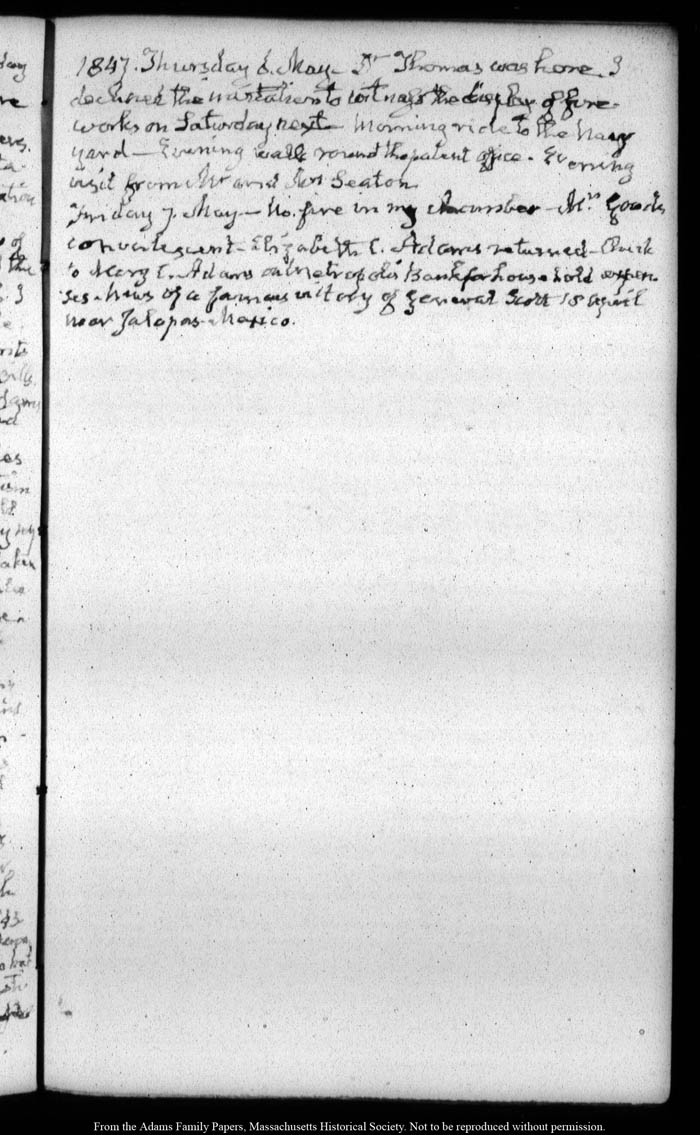 1847. Thursday 6. May. Dr Thomas was here. I
declined the invitation to witness the display of fire
works on Saturday next. Morning ride to the Navy
yard — Evening walk round the patent office. Evening
visit from Mr and Mrs Seaton
Friday 7. May — No. fire in my chamber — Mrs
convalescent — Elizabeth C. Adams returned — Check
to Mary C. Adams on Metropolis Bank for household expen-
ses. News of a famous victory of General Scott 18 April
near Jalapa. Mexico.
From the Adams Family Papers, Massachusetts Historical Society. Not to be reproduced without permission.